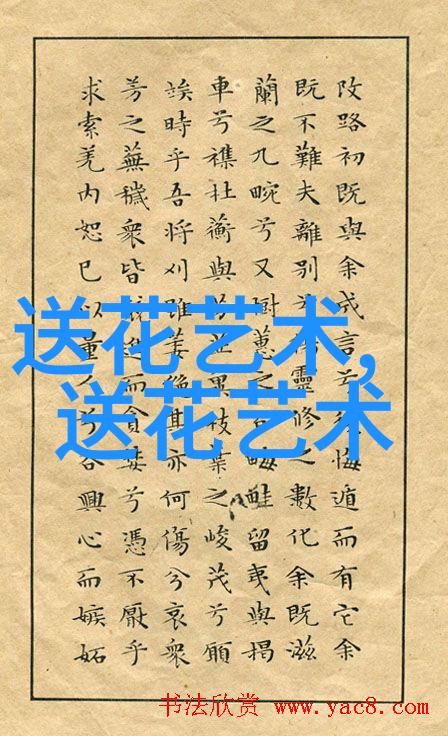 攺路初既與余成言兮後悔遁而有它余
既不難夫離別兮靈修之數化余既滋
蘭之九畹兮又樹蕙之百畮畦留夷與揭
車兮襍杜蘅與芳芷兾枝葉之峻茂兮願
竢時乎吾將刈雖萎絕其亦何傷兮哀衆
芳之蕪穢衆皆進而貪婪兮憑不厭乎
求索羌内恕己以量人兮各興心而嫉妬
送花艺术,
送花艺术
书法欣赏 www.yac8.com